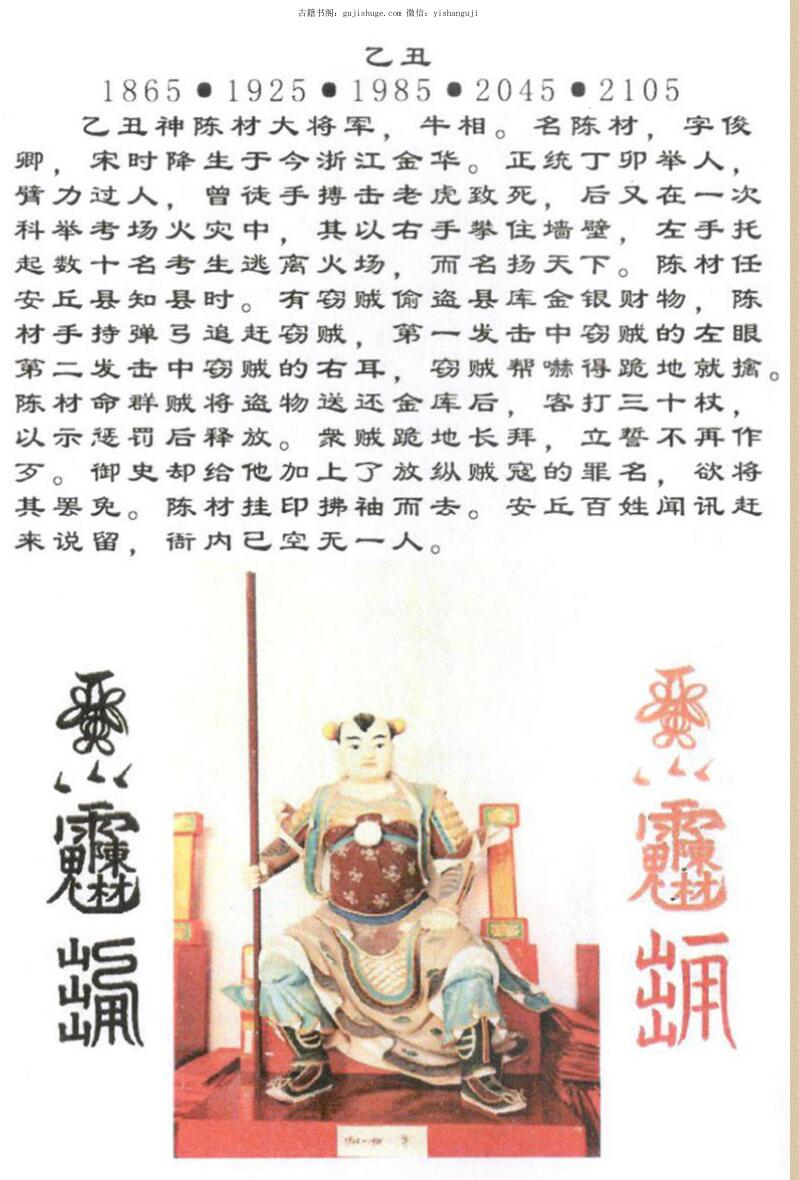 古籍书阁：gujishuge.com 微信：yishanguji
乙丑
1865●1925●1985●2045●2105
乙丑神陈材大将军，牛相。名陈材，字俊
卿，宋时降生于今浙江金华。正统丁卯举人，
臂力过人，曾徒手搏击老虎致死，后又在一次
科举考场火灾中，其以右手攀住墙壁，左手托
起数十名考生逃离火场，而名扬天下。陈材任
安丘县知县时。有窃贼偷盗县库金银财物，陈
材手持弹弓追赶窃贼，第一发击中窃贼的左眼
第二发击中窃贼的右耳，窃贼帮嚇得跪地就擒。
陈材命群贼将盗物送还金库后，客打三十杖，
以示惩罚后释放。衆贼跪地长拜，立誓不再作
歹。御史却给他加上了放纵贼寇的罪名，欲将
其罢免。陈材挂印拂袖而去。安丘百姓闻讯赶
来说留，衙内已空无一人。